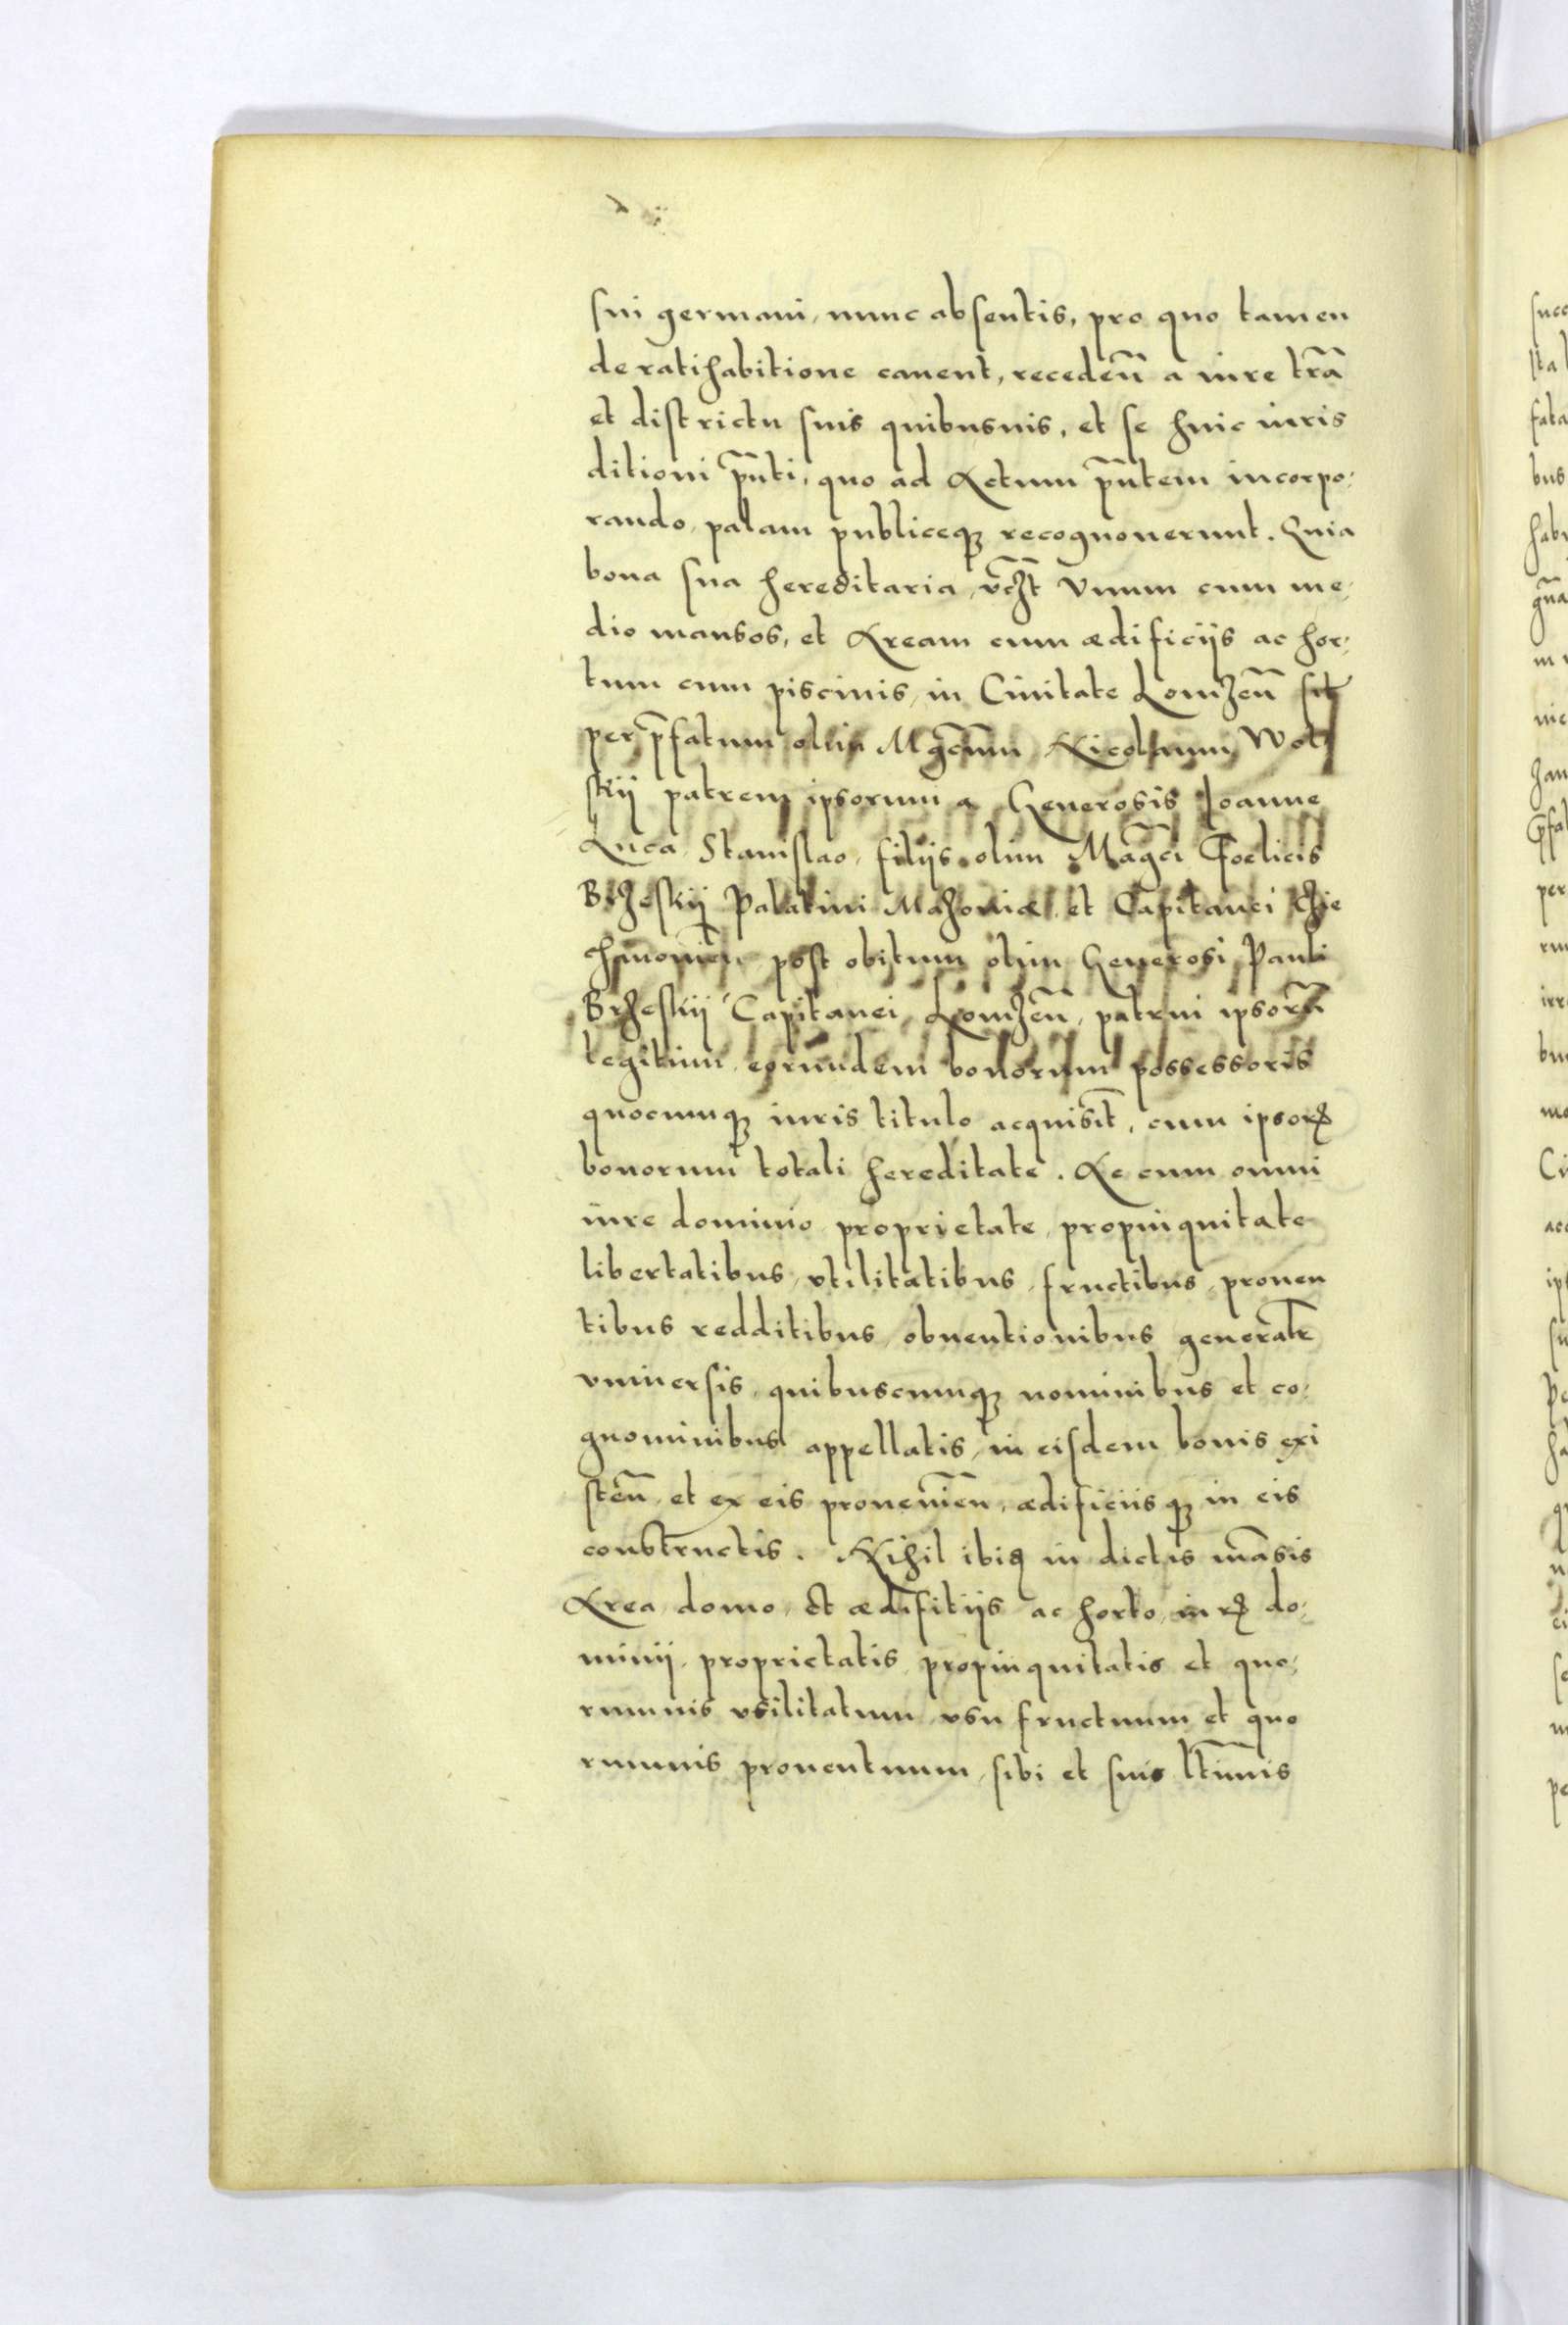 sui germani, nunc absentis, pro quo tamen
de ratihabitione cavent, recedeñ a iure trã
et districtu suis quibusuis, et se huic iuris
ditioni pñti, quo ad Actum pñtem incorpo-
rando, palam publiceq̃ recognouerunt. Quia
bona sua hereditaria, vczt Vnum cum me-
dio mansos, et Aream cum ædificiis ac hor-
tum cum piscinis, in Ciuitate Lomzeñ sit
per p̃fatum olim Mgcũm Nicolaum Wol
skij patrem ipsorum a Generosis Joanne
Luca Stanislao, filijs olim Mãgci Foelicis
Brzeskij Palatini Mazouiæ et Capitanei
post obitum olim Generosi Pauli
Brzeskij Capitanei Lomzeñ, patrui ipsorũ
legitimi eorundem bonorum possessoris
quocunq̃ iuris titulo acquisit̃, cum ipsoꝝ
bonorum totali hereditate. Ac cum omni
iure dominio proprietate, propinquitate
libertatibus, vtilitatibus, fructibus, prouen
tibus redditibus, obuentionibus generalr̃
vniuersis, quibuscunq̃ nominibus et co-
gnominibus appellatis, in eisdem bonis exi
steñ, et ex eis prouenieñ, ædificiis q̃ in eis
constructis. Nihil ibiꝗ in dictis mãsis
Area domo, et ædifitijs ac horto, iurꝭ do-
minij, proprietatis, propinquitatis et quo-
rumuis vsilitatum vsu fructuum et quo
rumuis prouentuum, sibi et suis ltĩmis